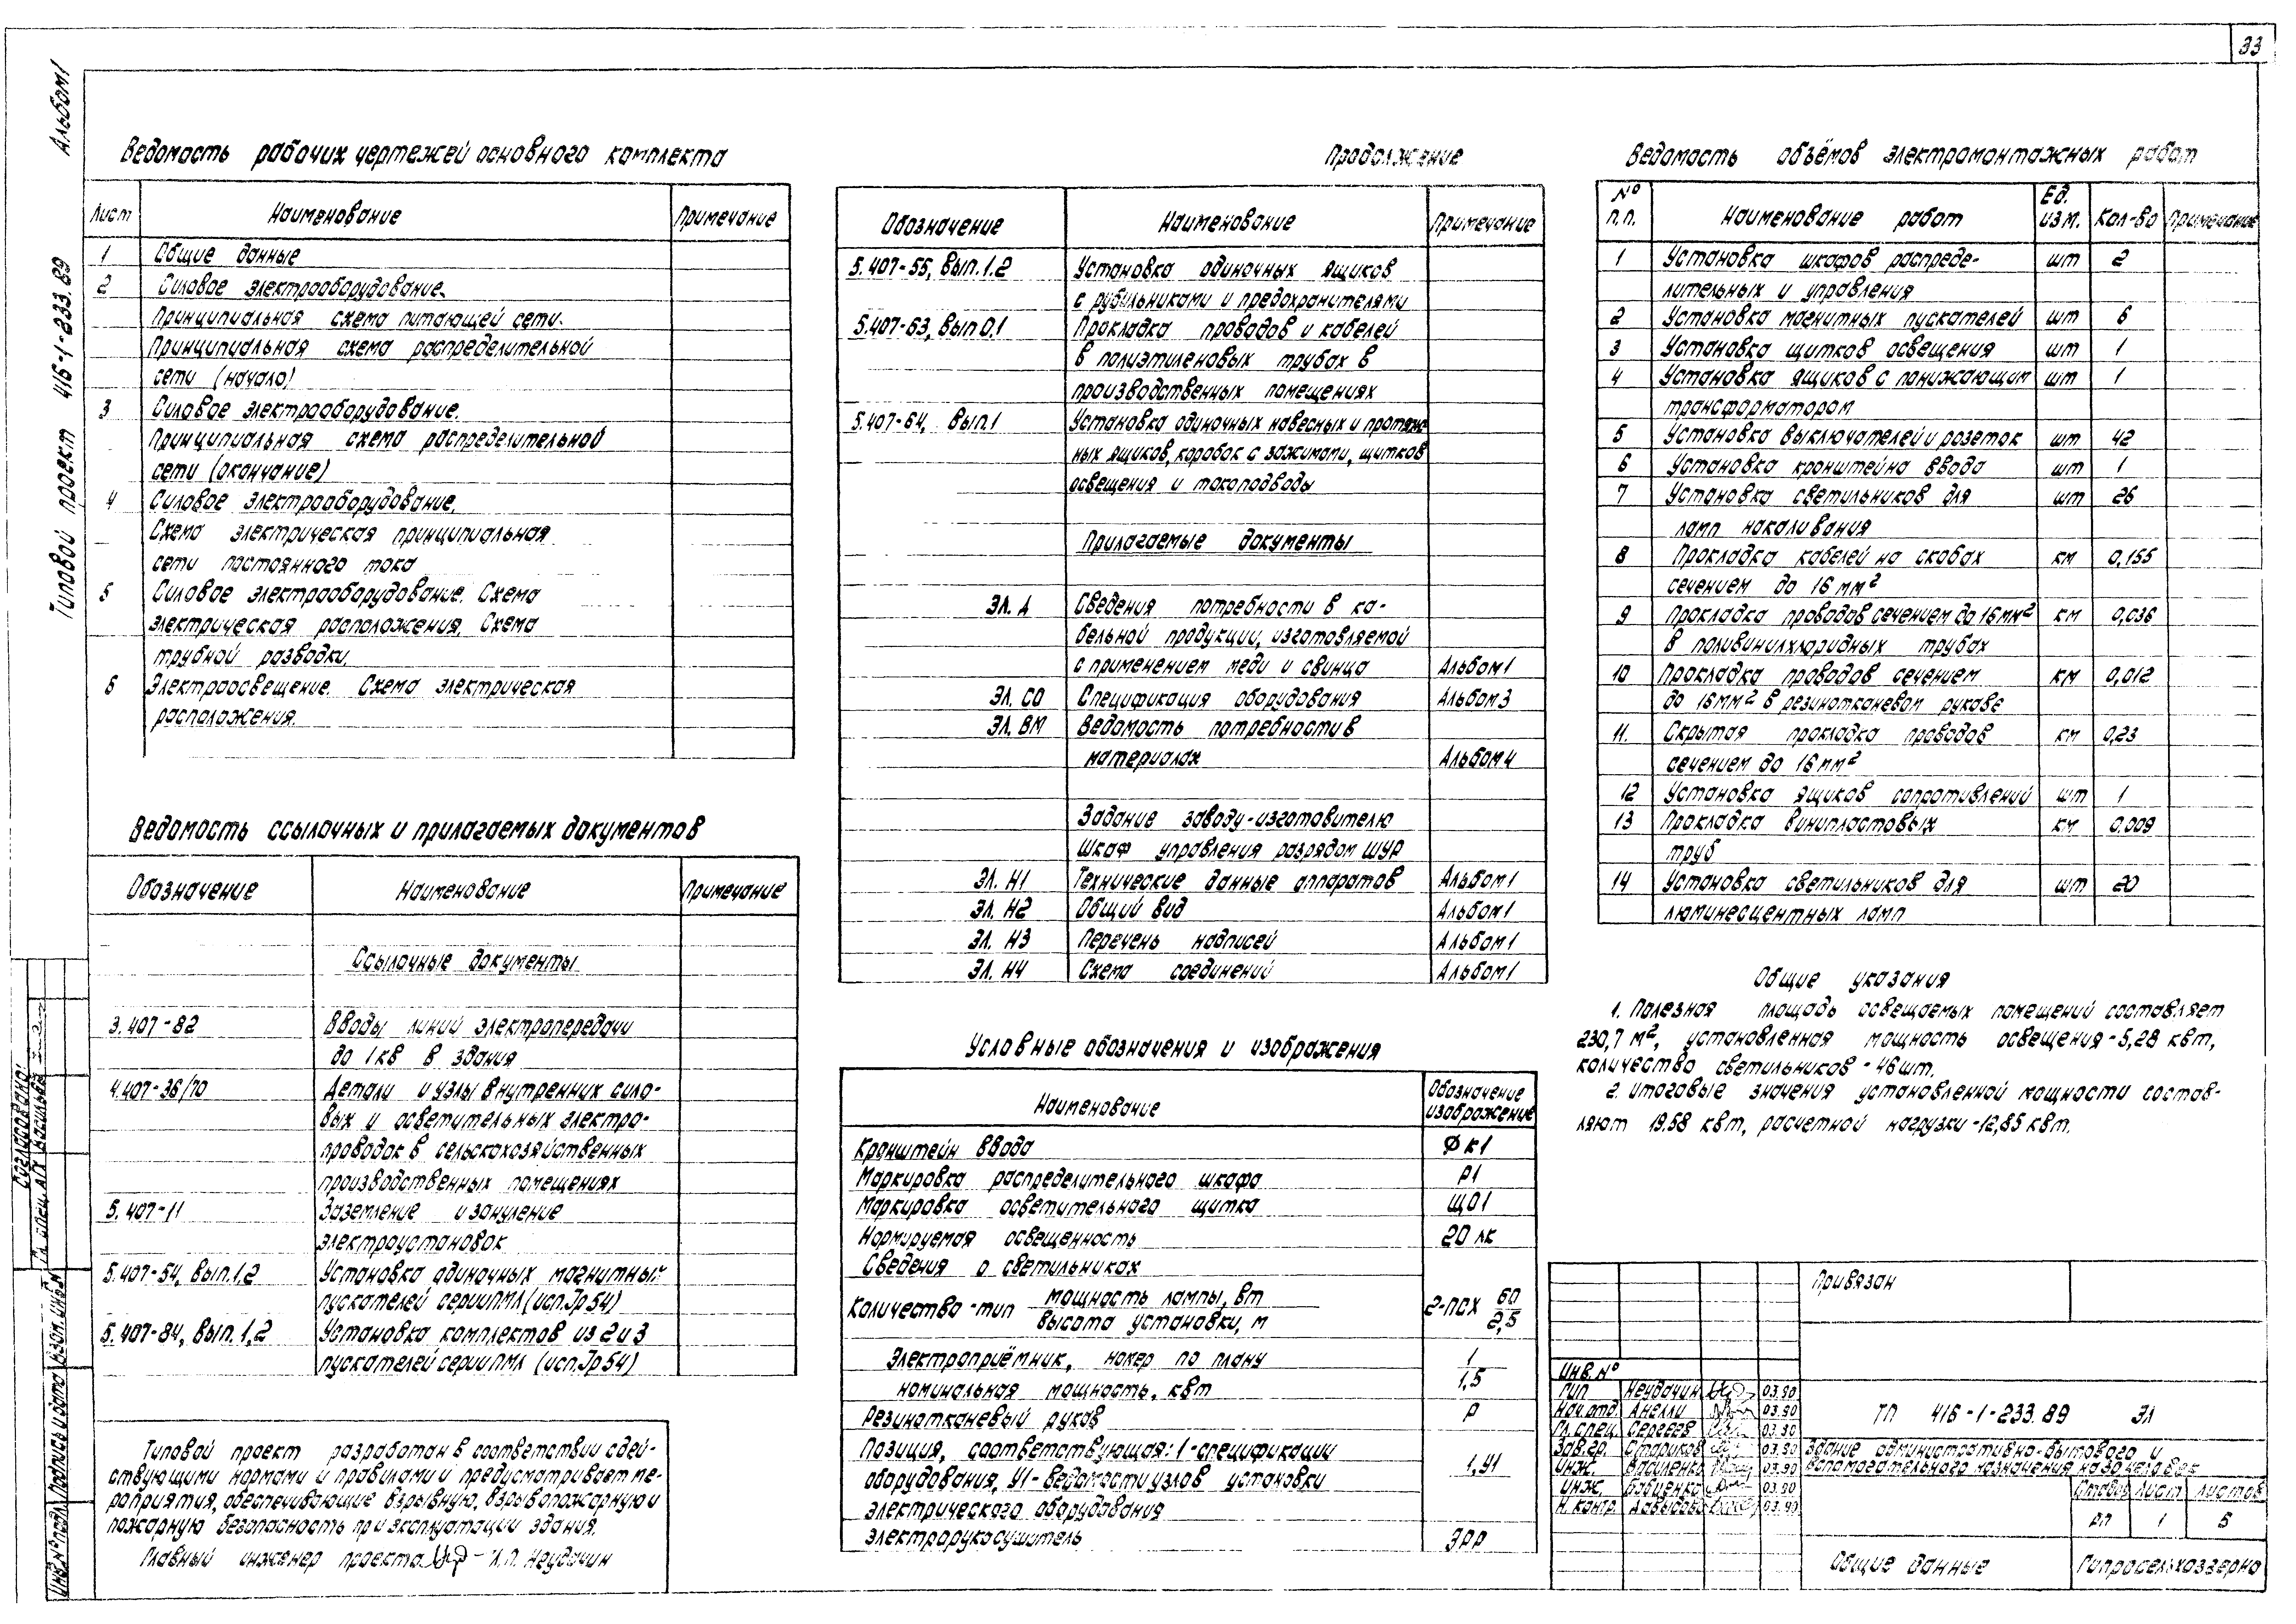 33
Альбом 1
Типовой проект 416-1-233.89
Ведомость рабочих чертежей основного комплекта
Лист Наименование Примечание
1 Общие данные
2 Силовое электрооборудование.
Принципиальная схема питающей сети.
Принципиальная схема распределительной
сети (начало)
3 Силовое электрооборудование.
Принципиальная схема распределительной
сети (окончание)
4 Силовое электрооборудование.
Схема электрическая принципиальная
сети постоянного тока
5 Силовое электрооборудование. Схема
электрическая расположения. Схема
трубной разводки.
6 Электроосвещение. Схема электрическая
расположения.
Ведомость ссылочных и прилагаемых документов
Обозначение Наименование Примечание
Ссылочные документы
3.407-82 Вводы линий электропередачи
до 1кв в здания
4.407-36/70 Детали и узлы внутренних сило-
вых и осветительных электро-
проводок в сельскохозяйственных
производственных помещениях
5.407-11 Заземление и зануление
электроустановок
5.407-54, вып.1,2 Установка одиночных магнитных
пускателей серии ПМЛ (исп.Jp54)
5.407-84, вып.1,2 Установка комплектов из 2 и 3
пускателей серии ПМЛ (исп.Jp54)
Типовой проект разработан в соответствии с дей-
ствующими нормами и правилами и предусматривает ме-
роприятия, обеспечивающие взрывную, взрывопожарную и
пожарную безопасность при эксплуатации здания.
Главный инженер проекта Л.П. Неудачин
Продолжение
Обозначение Наименование Примечание
5.407-55, вып.1.2 Установка одиночных ящиков
с рубильниками и предохранителями
5.407-63, вып 0.1 Прокладка проводов и кабелей
в полиэтиленовых трубах в
производственных помещениях
5.407-64, вып.1 Установка одиночных навесных и протяж-
ных ящиков, коробок с зажимами, щитков
освещения и токоподводы
Прилагаемые документы
ЭЛ. Д Сведения потребности в ка-
бельной продукции, изготовляемой
с применением меди и свинца Альбом 1
ЭЛ. СО Спецификация оборудования Альбом 3
ЭЛ. ВМ Ведомость потребности в
материалах Альбом 4
Задание заводу-изготовителю
Шкаф управления разрядом ШУР
ЭЛ. Н1 Технические данные аппаратов Альбом 1
ЭЛ. Н2 Общий вид Альбом 1
ЭЛ. Н3 Перечень надписей Альбом 1
ЭЛ. Н4 Схема соединений Альбом 1
Условные обозначения и изображения
Наименование Обозначение
изображение
Кронштейн ввода Ф к1
Маркировка распределительного шкафа Р1
Маркировка осветительного щитка ЩО1
Нормируемая освещенность 20 лк
Сведения о светильниках
Количество-тип мощность лампы, вт / высота установки, м 2-ПСХ 60/2,5
Электроприёмник, номер по плану 1
номинальная мощность, квт 1,5
Резинотканевый рукав Р
Позиция, соответствующая: 1-спецификации
оборудования, У1-ведомости узлов установки 1,У1
электрического оборудования
электрорукосушитель ЭРР
Ведомость объёмов электромонтажных работ
№ п.п. Наименование работ Ед. изм. Кол-во Примечание
1 Установка шкафов распреде- шт 2
лительных и управления
2 Установка магнитных пускателей шт 6
3 Установка щитков освещения шт 1
4 Установка ящиков с понижающим шт 1
трансформатором
5 Установка выключателей и розеток шт 42
6 Установка кронштейна ввода шт 1
7 Установка светильников для шт 26
ламп накаливания
8 Прокладка кабелей на скобах км 0,155
сечением до 16 мм²
9 Прокладка проводов сечением до 16 мм² км 0,036
в поливинилхлоридных трубах
10 Прокладка проводов сечением км 0,012
до 16 мм² в резинотканевом рукаве
11. Скрытая прокладка проводов км 0,23
сечением до 16 мм²
12 Установка ящиков сопротивлений шт 1
13 Прокладка винипластовых км 0.009
труб
14 Установка светильников для шт 20
люминесцентных ламп
Общие указания
1. Полезная площадь освещаемых помещений составляет
230,7 м², установленная мощность освещения-5,28 квт,
количество светильников-46шт.
2. Итоговые значения установленной мощности состав-
ляют 19.58 квт, расчетной нагрузки-12,85 квт.
Привязан
Инв. №
Гип Неудачин 03.90
Нач.отд Анелли 03.90
Гл. спец. Сергеев 03.90
Зав.гр. Стариков 03.90
Инж. Василенко 03.90
Инж. Бабиенко 03.90
Н. контр. Давыдова 03.90
ТП 416-1-233.89 ЭЛ
Здание административно-бытового и
вспомогательного назначения на 30 человек
Стадия Лист Листов
РП 1 6
Общие данные Гипросельхоззерно
Согласовано:
Гл. спец. АПХ Васильев
Инв.№подл. Подпись и дата Взам. инв.№